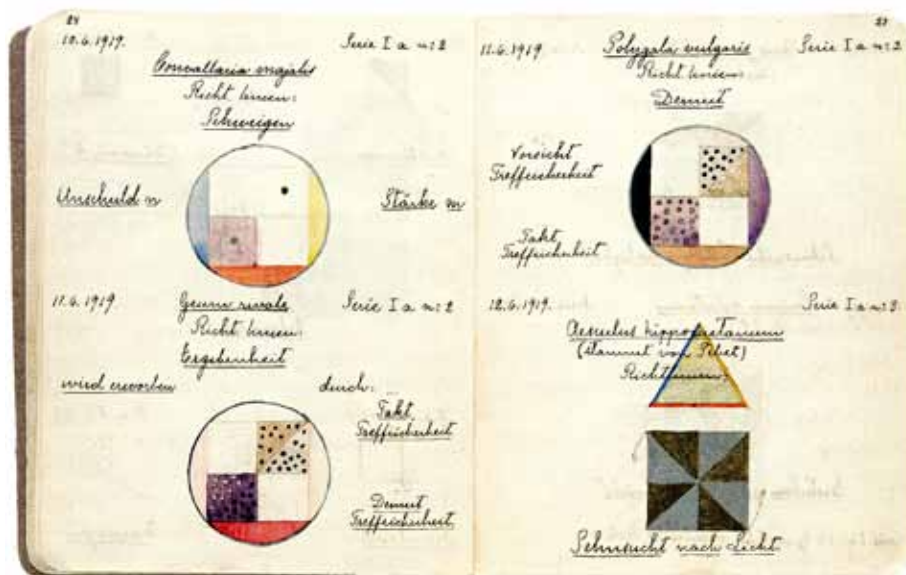 24
10.6.1919. Serie I a n:2
Convallaria majalis
Richtlinien:
Schweigen
Unschuld m Stärke m
11.6.1919 Geum rivale Serie I a n:2
Richtlinien:
Ergebenheit
wird erworben durch:
Takt,
Treffsicherheit
Demut
Treffsicherheit
11.6.1919 Polygala vulgaris Serie I a n:2
Richtlinien:
Demut
Vorsicht
Treffsicherheit
Takt,
Treffsicherheit
12.6.1919. Serie I a n:3
Aesculus hippocastanum
(stammt von Tibet)
Richtlinien,
Sehnsucht nach Licht